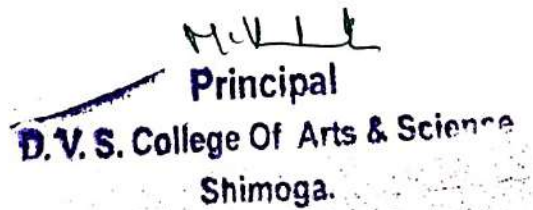 Principal
D.V.S. College Of Arts & Science
Shimoga.